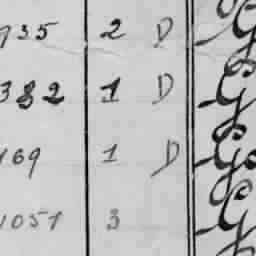 935 2 D G
382 1 D G
169 1 D Go
1051 3 G